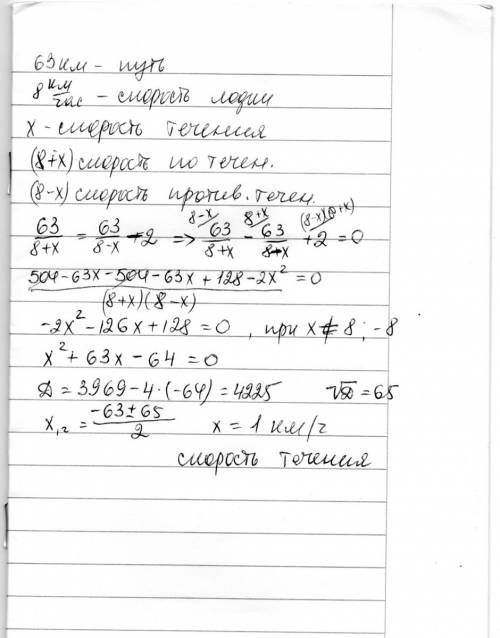 63 км - путь
8 км/час - скорость лодки
x - скорость течения
(8+x) скорость по течен.
(8-x) скорость против. течен.
63/(8+x) = 63/(8-x) - 2 => 8-x/ 63/(8+x) - 8+x/ 63/(8+x) (8-x)(8+x)/ +2 = 0
(504 - 63x - 504 - 63x + 128 - 2x²)/((8+x)(8-x)) = 0
-2x² - 126x + 128 = 0 , при x ≠ 8 ; -8
x² + 63x - 64 = 0
D = 3969 - 4·(-64) = 4225 √D = 65
x₁,₂ = (-63 ± 65)/2 x = 1 км/ч
скорость течения